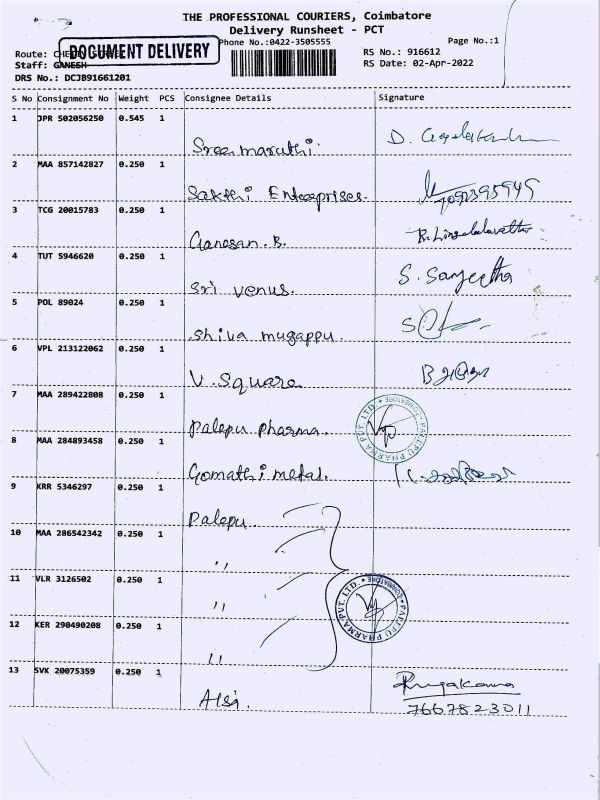 THE PROFESSIONAL COURIERS, Coimbatore
Delivery Runsheet - PCT
Phone No.:0422-3505555
Page No.:1
Route: CHETTY STREET
DOCUMENT DELIVERY
RS No.: 916612
Staff: GANESH
RS Date: 02-Apr-2022
DRS No.: DCJB91661201
S No Consignment No Weight PCS Consignee Details Signature
1 JPR 502056250 0.545 1
Sree maruthi.
2 MAA 857142827 0.250 1
Sakthi Enterprises.
3 TCG 20015783 0.250 1
Ganesan. B.
4 TUT 5946620 0.250 1
Sri venus. S. Sangeetha
5 POL 89024 0.250 1
Shiva mugappu.
6 VPL 213122062 0.250 1
V. Square
7 MAA 289422808 0.250 1
Palepu pharma. PALEPU PHARMA PVT. LTD. * COIMBATORE *
8 MAA 284893458 0.250 1
Gomathi metal.
9 KRR 5346297 0.250 1
Palepu.
10 MAA 286542342 0.250 1
,,
11 VLR 3126502 0.250 1
,, PALEPU PHARMA PVT. LTD. * COIMBATORE *
12 KER 290490208 0.250 1
,,
13 SVK 20075359 0.250 1
Alsi. 7667823011